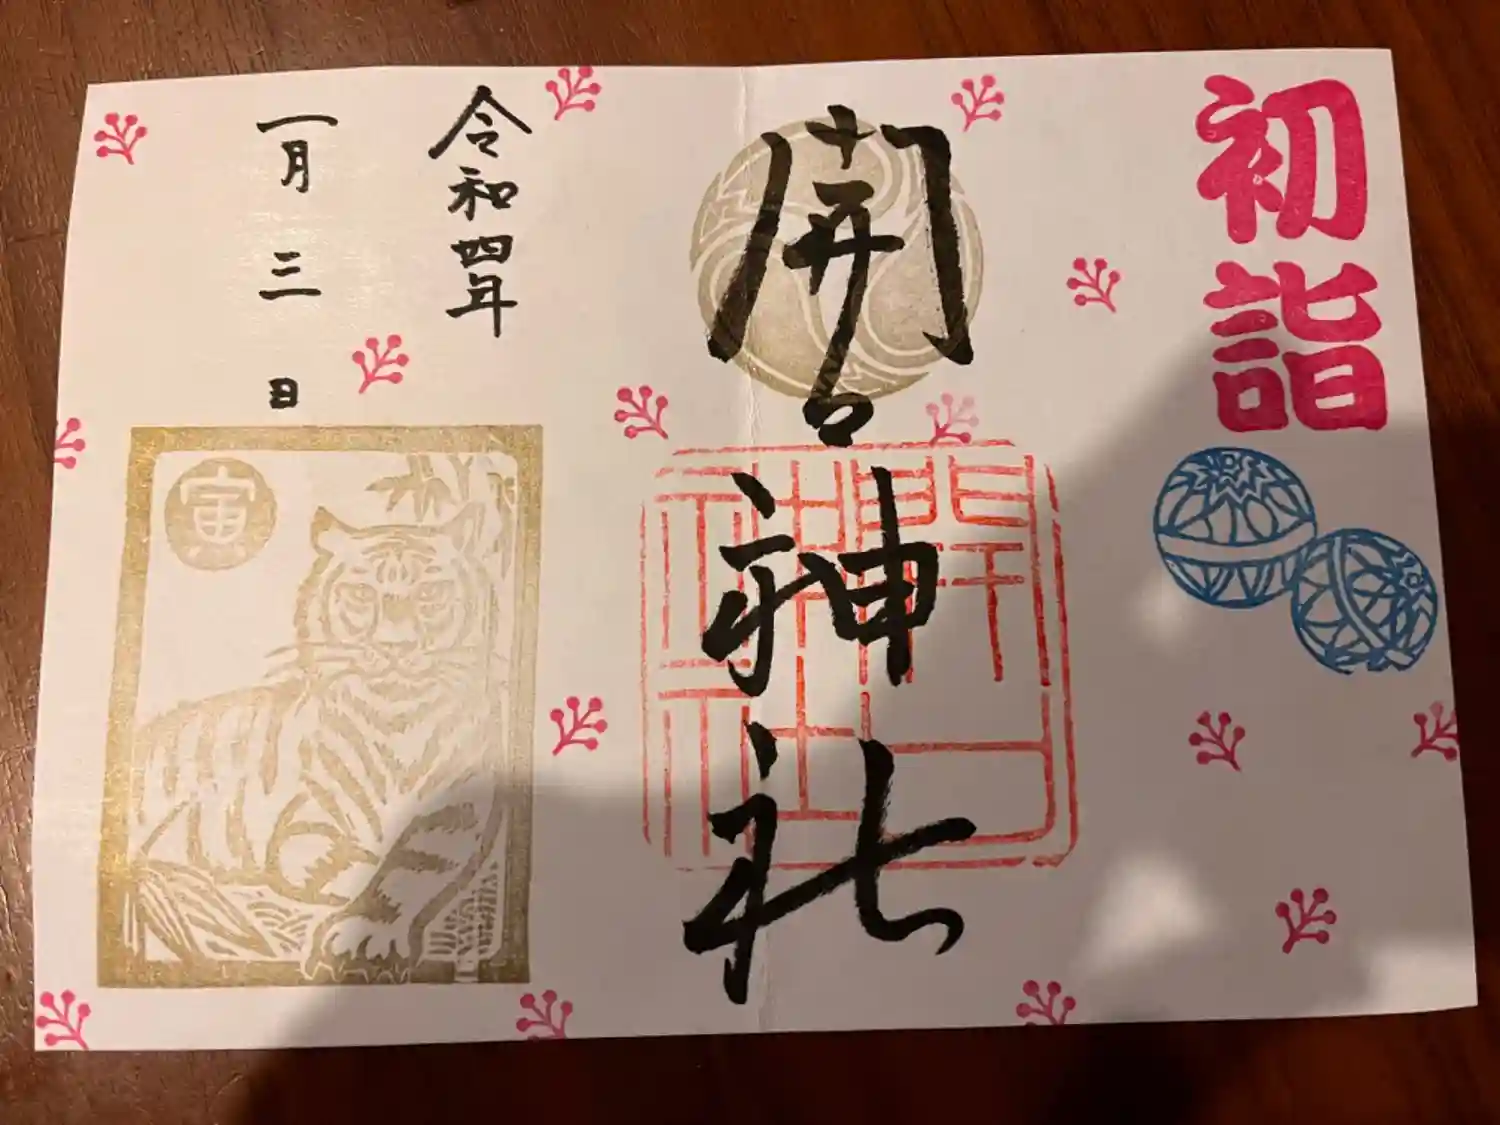 初詣
開口神社
開口
神社
令和四年
一月三日
寅